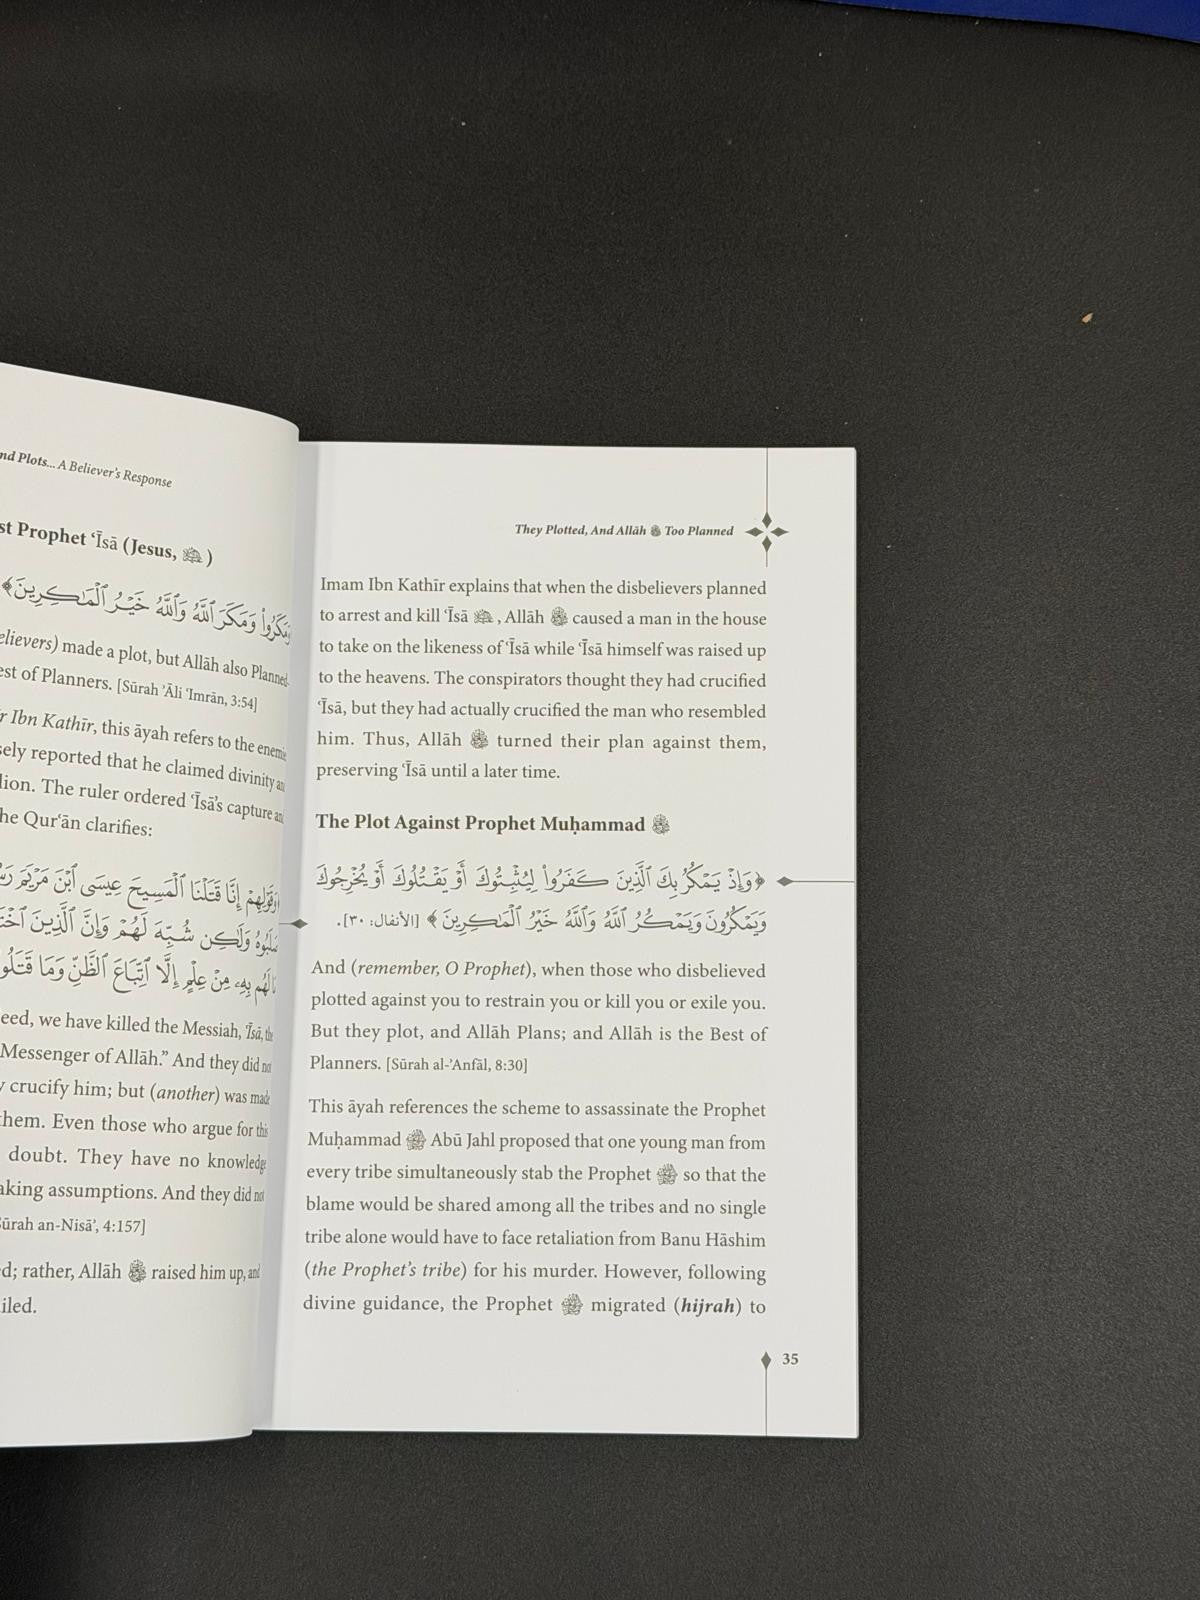 nd Plots... A Believer's Response
st Prophet ʿĪsā (Jesus, )
وَمَكَرُوا۟ وَمَكَرَ ٱللَّهُ وَٱللَّهُ خَيْرُ ٱلْمَـٰكِرِينَ ﴾
elievers) made a plot, but Allāh also Planned.
est of Planners. [Sūrah ʾĀli ʿImrān, 3:54]
r Ibn Kathīr, this āyah refers to the enemie
sely reported that he claimed divinity an
lion. The ruler ordered ʿĪsā's capture an
he Qurʿān clarifies:
وَقَوْلِهِمْ إِنَّا قَتَلْنَا ٱلْمَسِيحَ عِيسَى ٱبْنَ مَرْيَمَ
وَلَـٰكِن شُبِّهَ لَهُمْ وَإِنَّ ٱلَّذِينَ
لَهُم بِهِۦ مِنْ عِلْمٍ إِلَّا ٱتِّبَاعَ ٱلظَّنِّ وَمَا
eed, we have killed the Messiah, ʿĪsā, the
Messenger of Allāh.” And they did not
y crucify him; but (another) was made
them. Even those who argue for this
doubt. They have no knowledge
aking assumptions. And they did not
Sūrah an-Nisāʾ, 4:157]
d; rather, Allāh ﷻ raised him up, and
iled.
They Plotted, And Allāh ﷻ Too Planned
Imam Ibn Kathīr explains that when the disbelievers planned
to arrest and kill ʿĪsā , Allāh ﷻ caused a man in the house
to take on the likeness of ʿĪsā while ʿĪsā himself was raised up
to the heavens. The conspirators thought they had crucified
ʿĪsā, but they had actually crucified the man who resembled
him. Thus, Allāh ﷻ turned their plan against them,
preserving ʿĪsā until a later time.
The Plot Against Prophet Muḥammad ﷺ
﴿ وَإِذْ يَمْكُرُ بِكَ ٱلَّذِينَ كَفَرُوا۟ لِيُثْبِتُوكَ أَوْ يَقْتُلُوكَ أَوْ يُخْرِجُوكَ
وَيَمْكُرُونَ وَيَمْكُرُ ٱللَّهُ وَٱللَّهُ خَيْرُ ٱلْمَـٰكِرِينَ ﴾ [الأنفال: ٣٠].
And (remember, O Prophet), when those who disbelieved
plotted against you to restrain you or kill you or exile you.
But they plot, and Allāh Plans; and Allāh is the Best of
Planners. [Sūrah al-ʾAnfāl, 8:30]
This āyah references the scheme to assassinate the Prophet
Muḥammad ﷺ Abū Jahl proposed that one young man from
every tribe simultaneously stab the Prophet ﷺ so that the
blame would be shared among all the tribes and no single
tribe alone would have to face retaliation from Banu Hāshim
(the Prophet's tribe) for his murder. However, following
divine guidance, the Prophet ﷺ migrated (hijrah) to
35